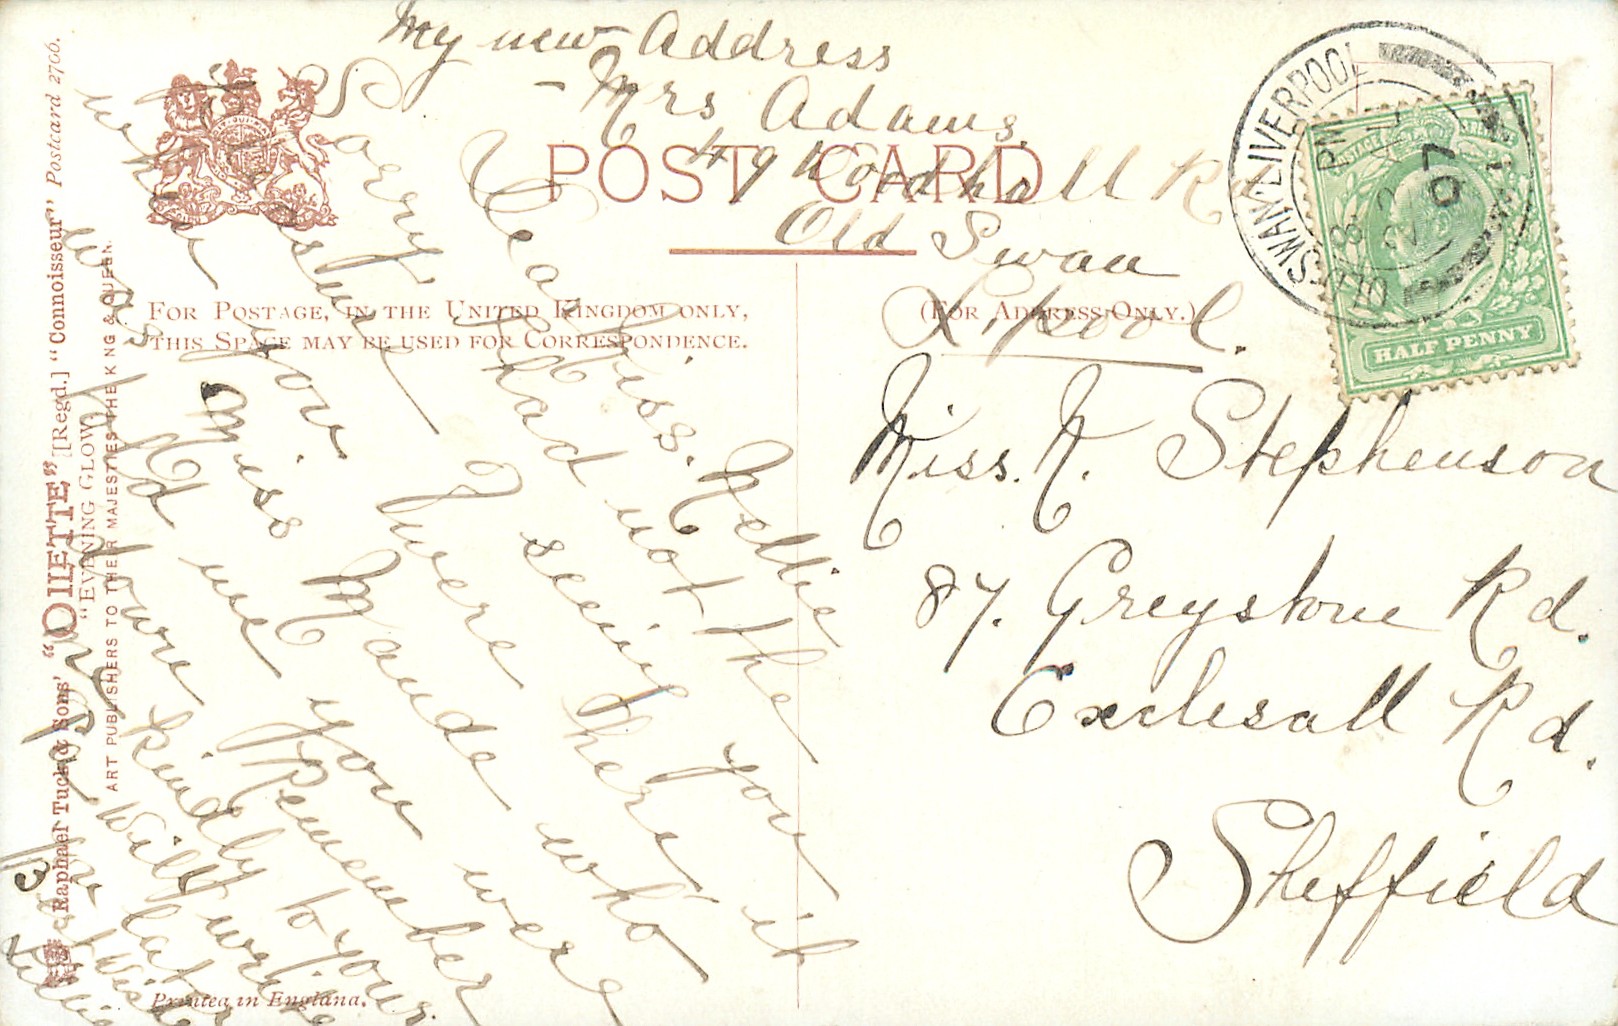 My new Address
Mrs Adams
49 Woodhall R
Old Swan
L.pool.
POST CARD
FOR POSTAGE, IN THE UNITED KINGDOM ONLY,
THIS SPACE MAY BE USED FOR CORRESPONDENCE.
(FOR ADDRESS ONLY.)
Dear Miss. Nellie
Sorry I had not the
pleasure seeing you
when you were here it
was Miss Maude who
told me you were
here Remember
me kindly to your
Will write
later
Best Wis
Miss. N. Stephenson
87. Greystone Rd.
Exclesall Rd.
Sheffield
Raphael Tuck & Sons' "OILETTE" [Regd.] "Connoisseur" Postcard 2706.
"EVENING GLOW"
ART PUBLISHERS TO THEIR MAJESTIES THE KING & QUEEN.
Printed in England.
OLD SWAN/LIVERPOOL
PM
07
HALF PENNY